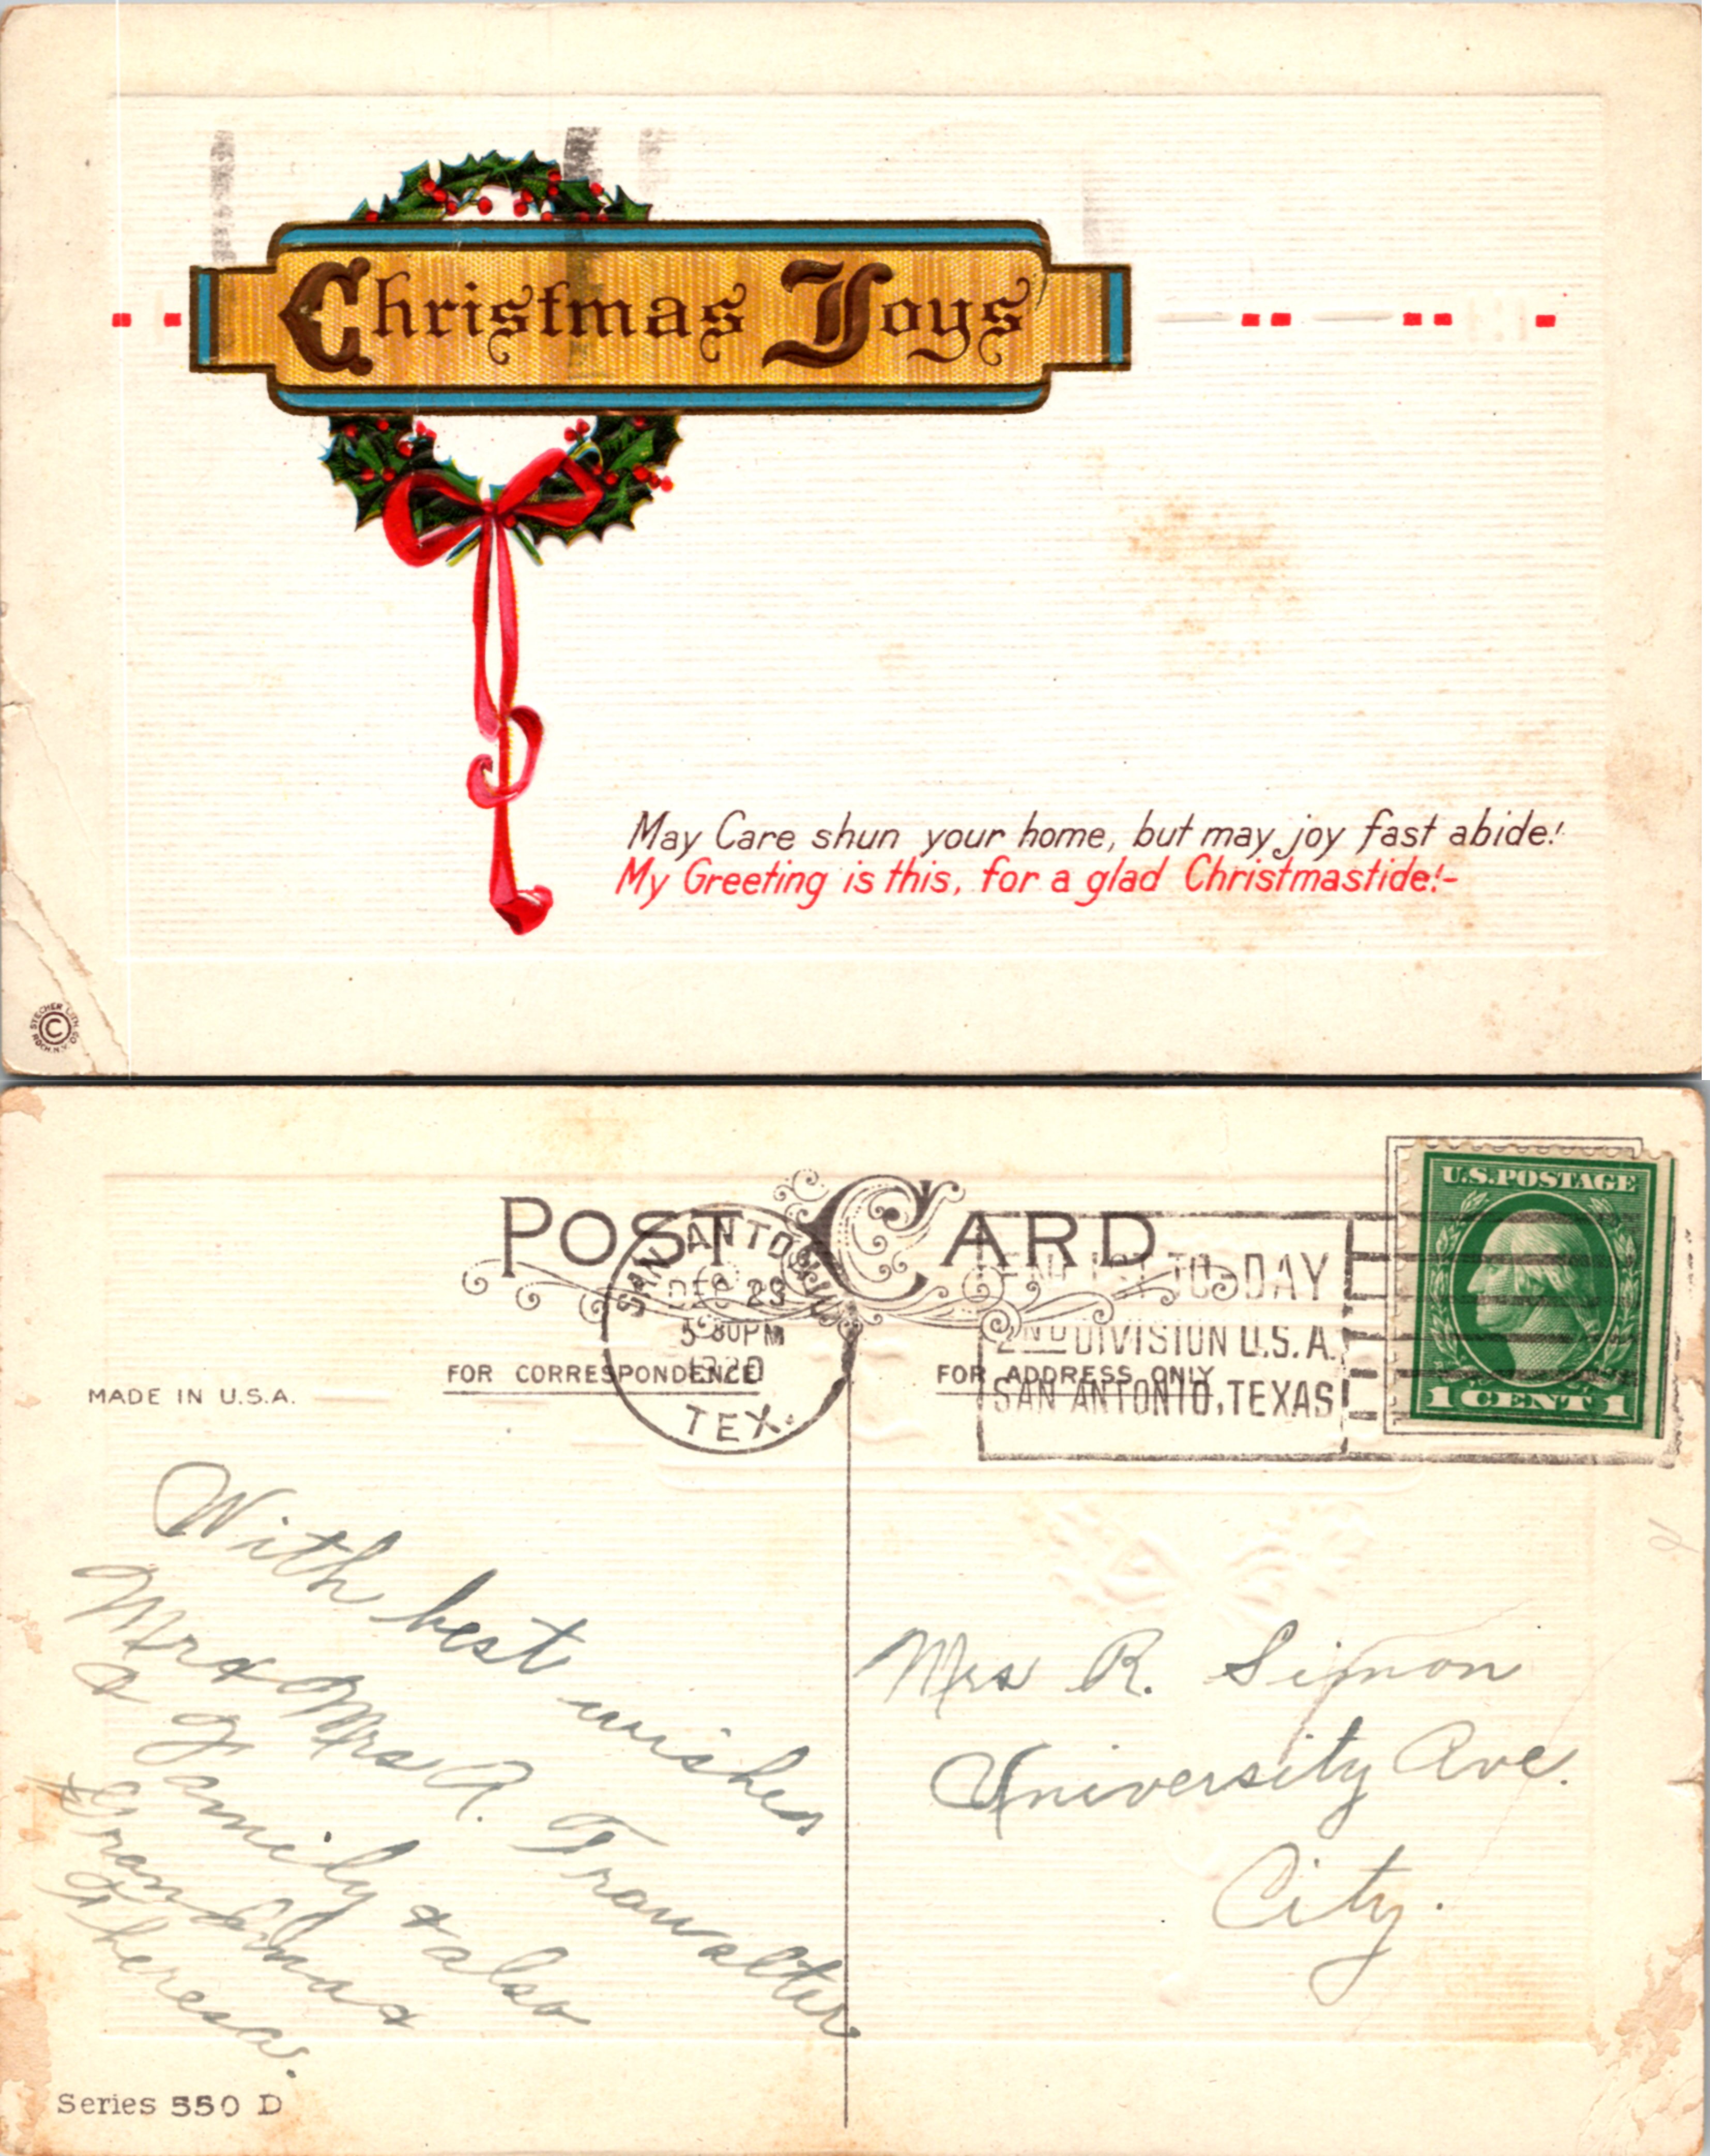 Christmas Joys
May Care shun your home, but may joy fast abide!
My Greeting is this, for a glad Christmastide!-
STECHER LITH. CO.
ROCH. N.Y.
©
POST CARD
U.S. POSTAGE
1 CENT 1
SAN ANTONIO
DEC 23
5 30 PM
1920
TEX.
ENLIST TO-DAY
2ND DIVISION U.S.A.
SAN ANTONIO, TEXAS
FOR CORRESPONDENCE
FOR ADDRESS ONLY
MADE IN U.S.A.
With best wishes
Mr & Mrs A. Trawalter
& Family & also
Grandma &
Theresa.
Mrs R. Simon
University Ave.
City.
Series 550 D